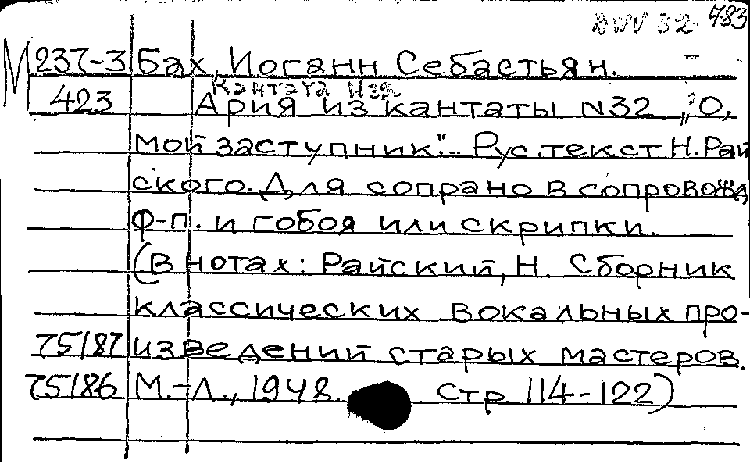 BWV 32 483
М 237-3 Бах, Иоганн Себастьян.
Кантата
423 Ария из кантаты N32 „О,
мой заступник". Рус. текст Н. Рай
ского. Для сопрано в сопровожд
Ф-п. и гобоя или скрипки.
(В нотах: Райский, Н. Сборник
классических вокальных про-
75187 изведений старых мастеров.
75186 М.-Л., 1948. Стр 114-122)